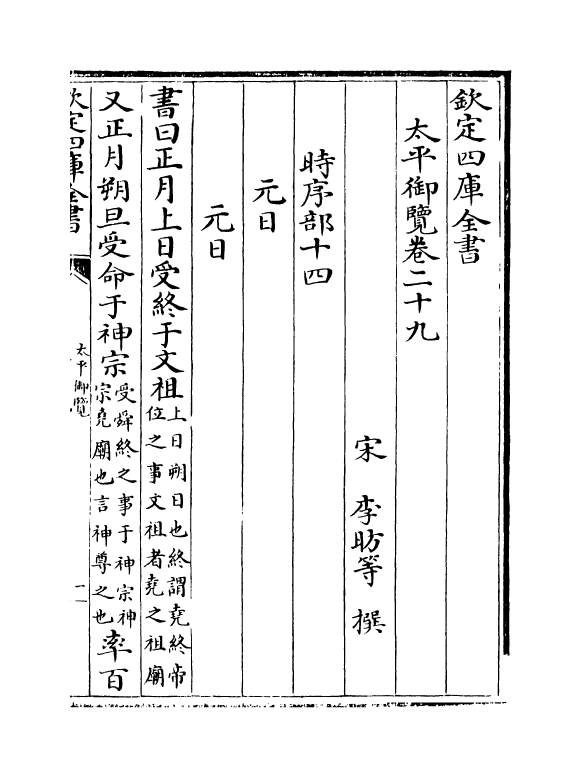 欽定四庫全書
太平御覽卷二十九
宋 李昉等 撰
時序部十四
元日
元日
書曰正月上日受終于文祖上日朔日也終謂堯終帝
位之事文祖者堯之祖廟
又正月朔旦受命于神宗受舜終之事于神宗神
宗堯廟也言神尊之也率百
欽定四庫全書
太平御覽
一